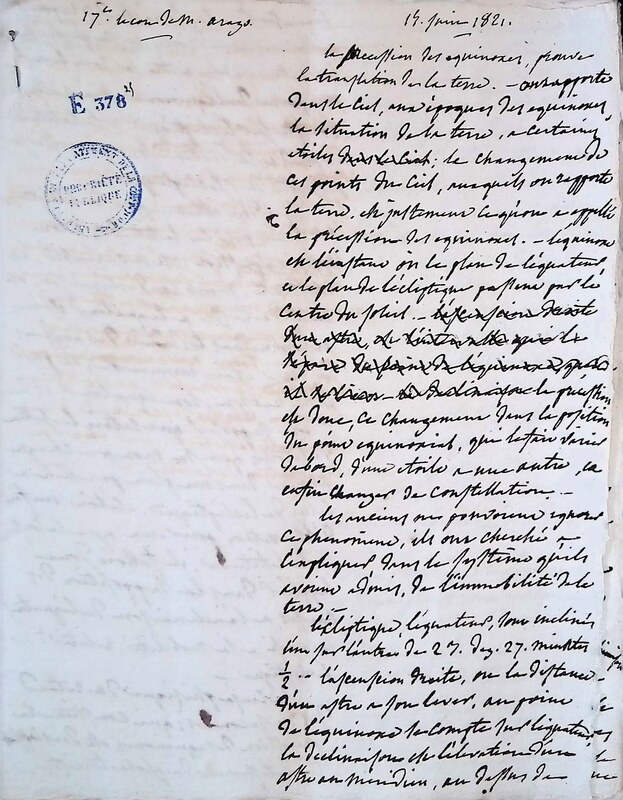 17e. lecon de M. arago.
15. juin 1821.
E 378 25
PROPRIÉTÉ
PUBLIQUE
la precession des equinoxes, prouve
la translation de la terre. – on rapporte
dans le Ciel, aux époques des equinoxes
la situation de la terre, a certaines
etoiles dans le Ciel; le changement de
ces points du Ciel, auxquels on rapporte
la terre, est justement ce qu'on a appellé
la précession des equinoxes. – lequinoxe
est l'instant où le plan de l'équateur
et le plan de l'écliptique passent par le
Centre du soleil. – l'ascension droite
d'un astre, est l'intervalle qui le
sépare du point de l'équinoxe, quand
il se leve – la declinaison la précession
est donc, ce changement dans la position
du point equinoxial, qui le fait varier
dabord, d'une etoile a une autre, et
enfin changer de constellation. –
les anciens ne pouvoient ignorer
ce phenomene, ils ont cherché a
l'expliquer dans le système qu'ils
avoient admis, de l'immobilité de la
terre. –
l'écliptique, l'équateur, sont inclinés
l'un sur l'autre de 23. deg. 27. minutes
½ – l'ascension droite, ou la distance
d'un astre a son lever, au point
de l'équinoxe se compte sur l'équateur
la declinaison est l'élévation d'un
astre au méridien, au dessus de